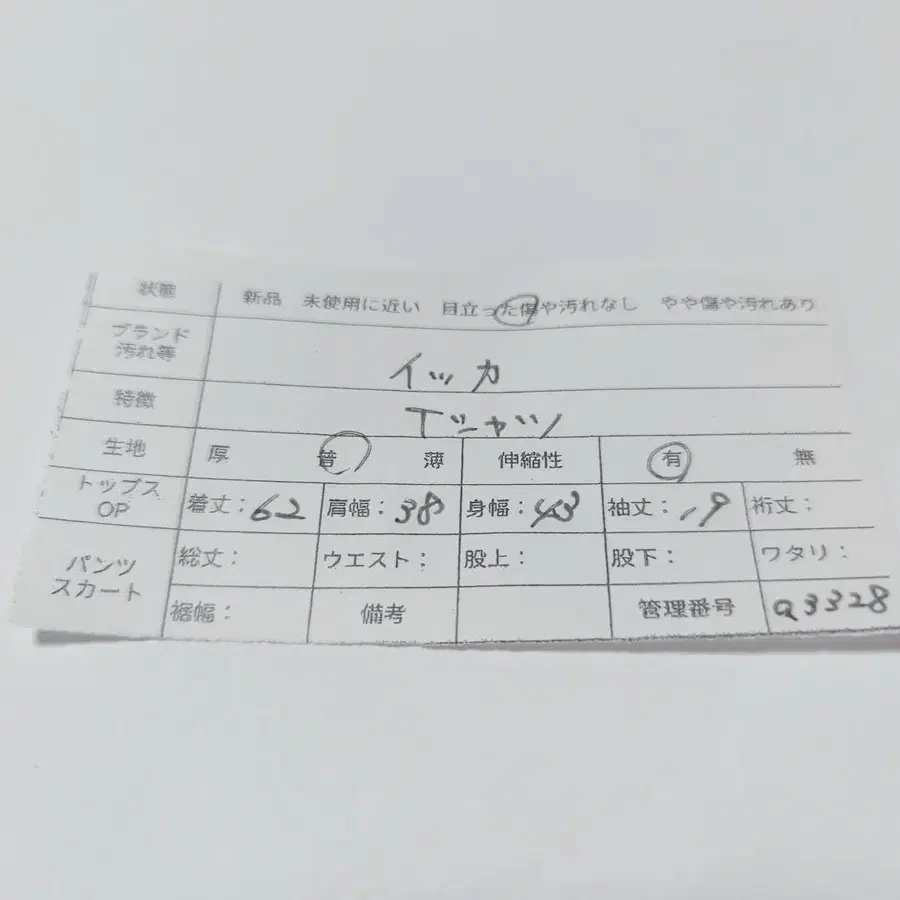 状態 新品 未使用に近い 目立った傷や汚れなし やや傷や汚れあり
ブランド
汚れ等 イッカ
特徴 Tシャツ
生地 厚 普 薄 伸縮性 有 無
トップス
OP 着丈:62 肩幅:38 身幅:43 袖丈:19 裄丈:
パンツ
スカート 総丈: ウエスト: 股上: 股下: ワタリ:
裾幅: 備考 管理番号 a3328